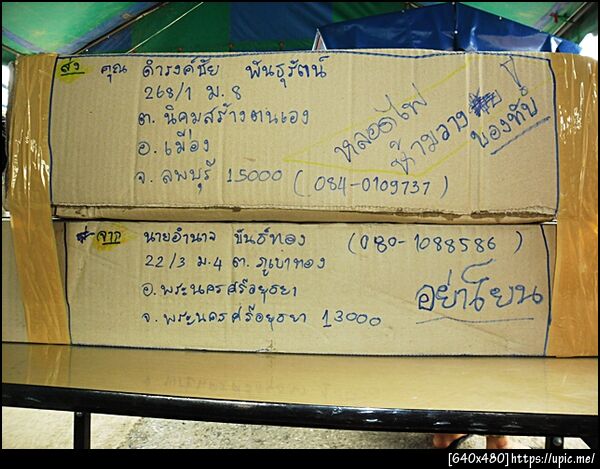 ส่ง คุณ ดำรงค์ชัย พันธุรัตน์
268/1 ม.8
ต. นิคมสร้างตนเอง
อ. เมือง
จ. ลพบุรี 15000 (084-0109737)
หลอดไฟ
ห้ามวาง
ของทับ
จาก นายอำนาจ ขันธ์ทอง (080-1088586)
22/3 ม.4 ต. ภูเขาทอง
อ. พระนครศรีอยุธยา
จ. พระนครศรีอยุธยา 13000
อย่าโยน
[640x480]https://upic.me/